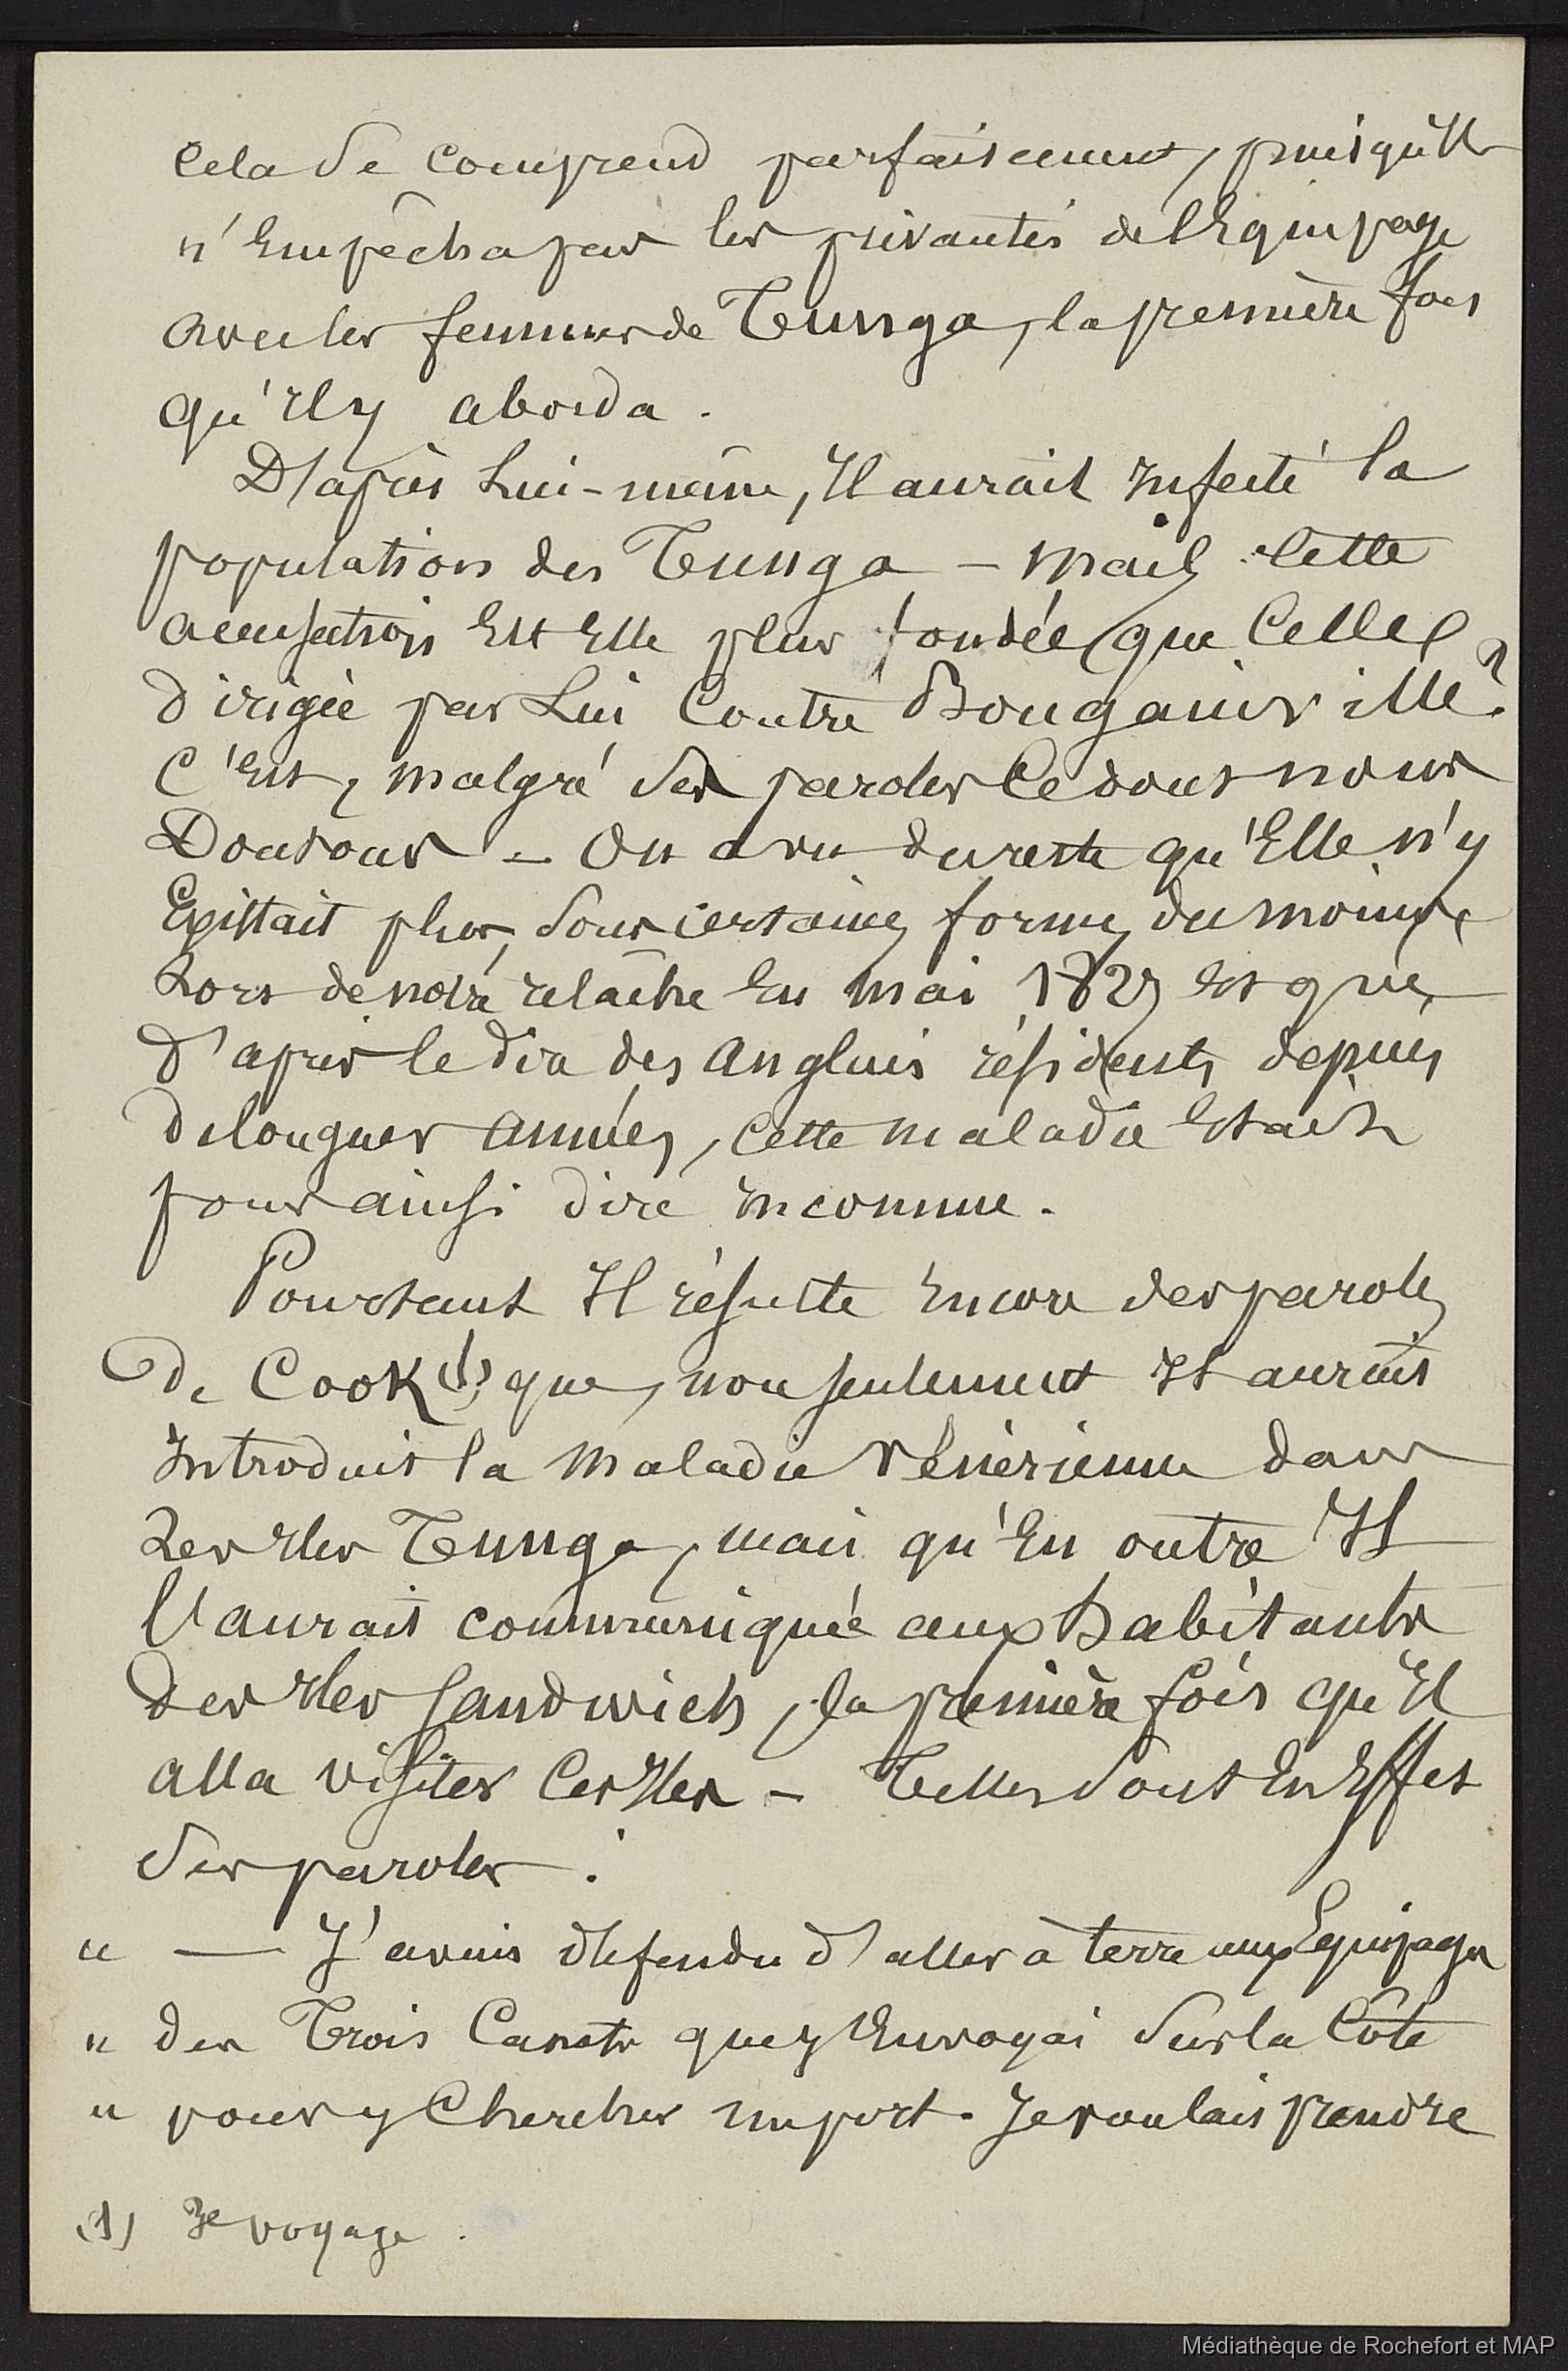 Cela se comprend parfaitement, puisqu'il
n'Empêcha pas les privautés de l'Equipage
avec les femmes de Tunga, la première fois
qu'Il y aborda.
D'après Lui-même, Il aurait Infecté la
population des Tunga – mais cette
accusation Est Elle plus fondée que Celle
dirigée par Lui Contre Bougainville ?
C'Est, malgré ses paroles Ce dont nous
Doutons – On a vu du reste qu'Elle n'y
Existait plus, sous certaines formes du moins,
Lors de notre relâche En mai 1827 et que,
d'après le dire des Anglais résidents depuis
de longues Années, cette maladie Etait
pour ainsi dire Inconnue.
Pourtant Il résulte Encore des paroles
de Cook (1) que, non seulement Il aurait
Introduit la maladie vénérienne dans
Les Iles Tunga, mais qu'En outre Il
l'aurait communiquée aux habitants
des Iles Sandwich, la première fois qu'Il
alla visiter Ces Iles – Telles sont En Effet
ses paroles :
" — J'avais défendu d'aller à terre aux Equipages
" des Trois Canots que j'Envoyai sur la Côte
" pour y Chercher un port. Je voulais prendre
(1) 3e voyage.
Médiathèque de Rochefort et MAP